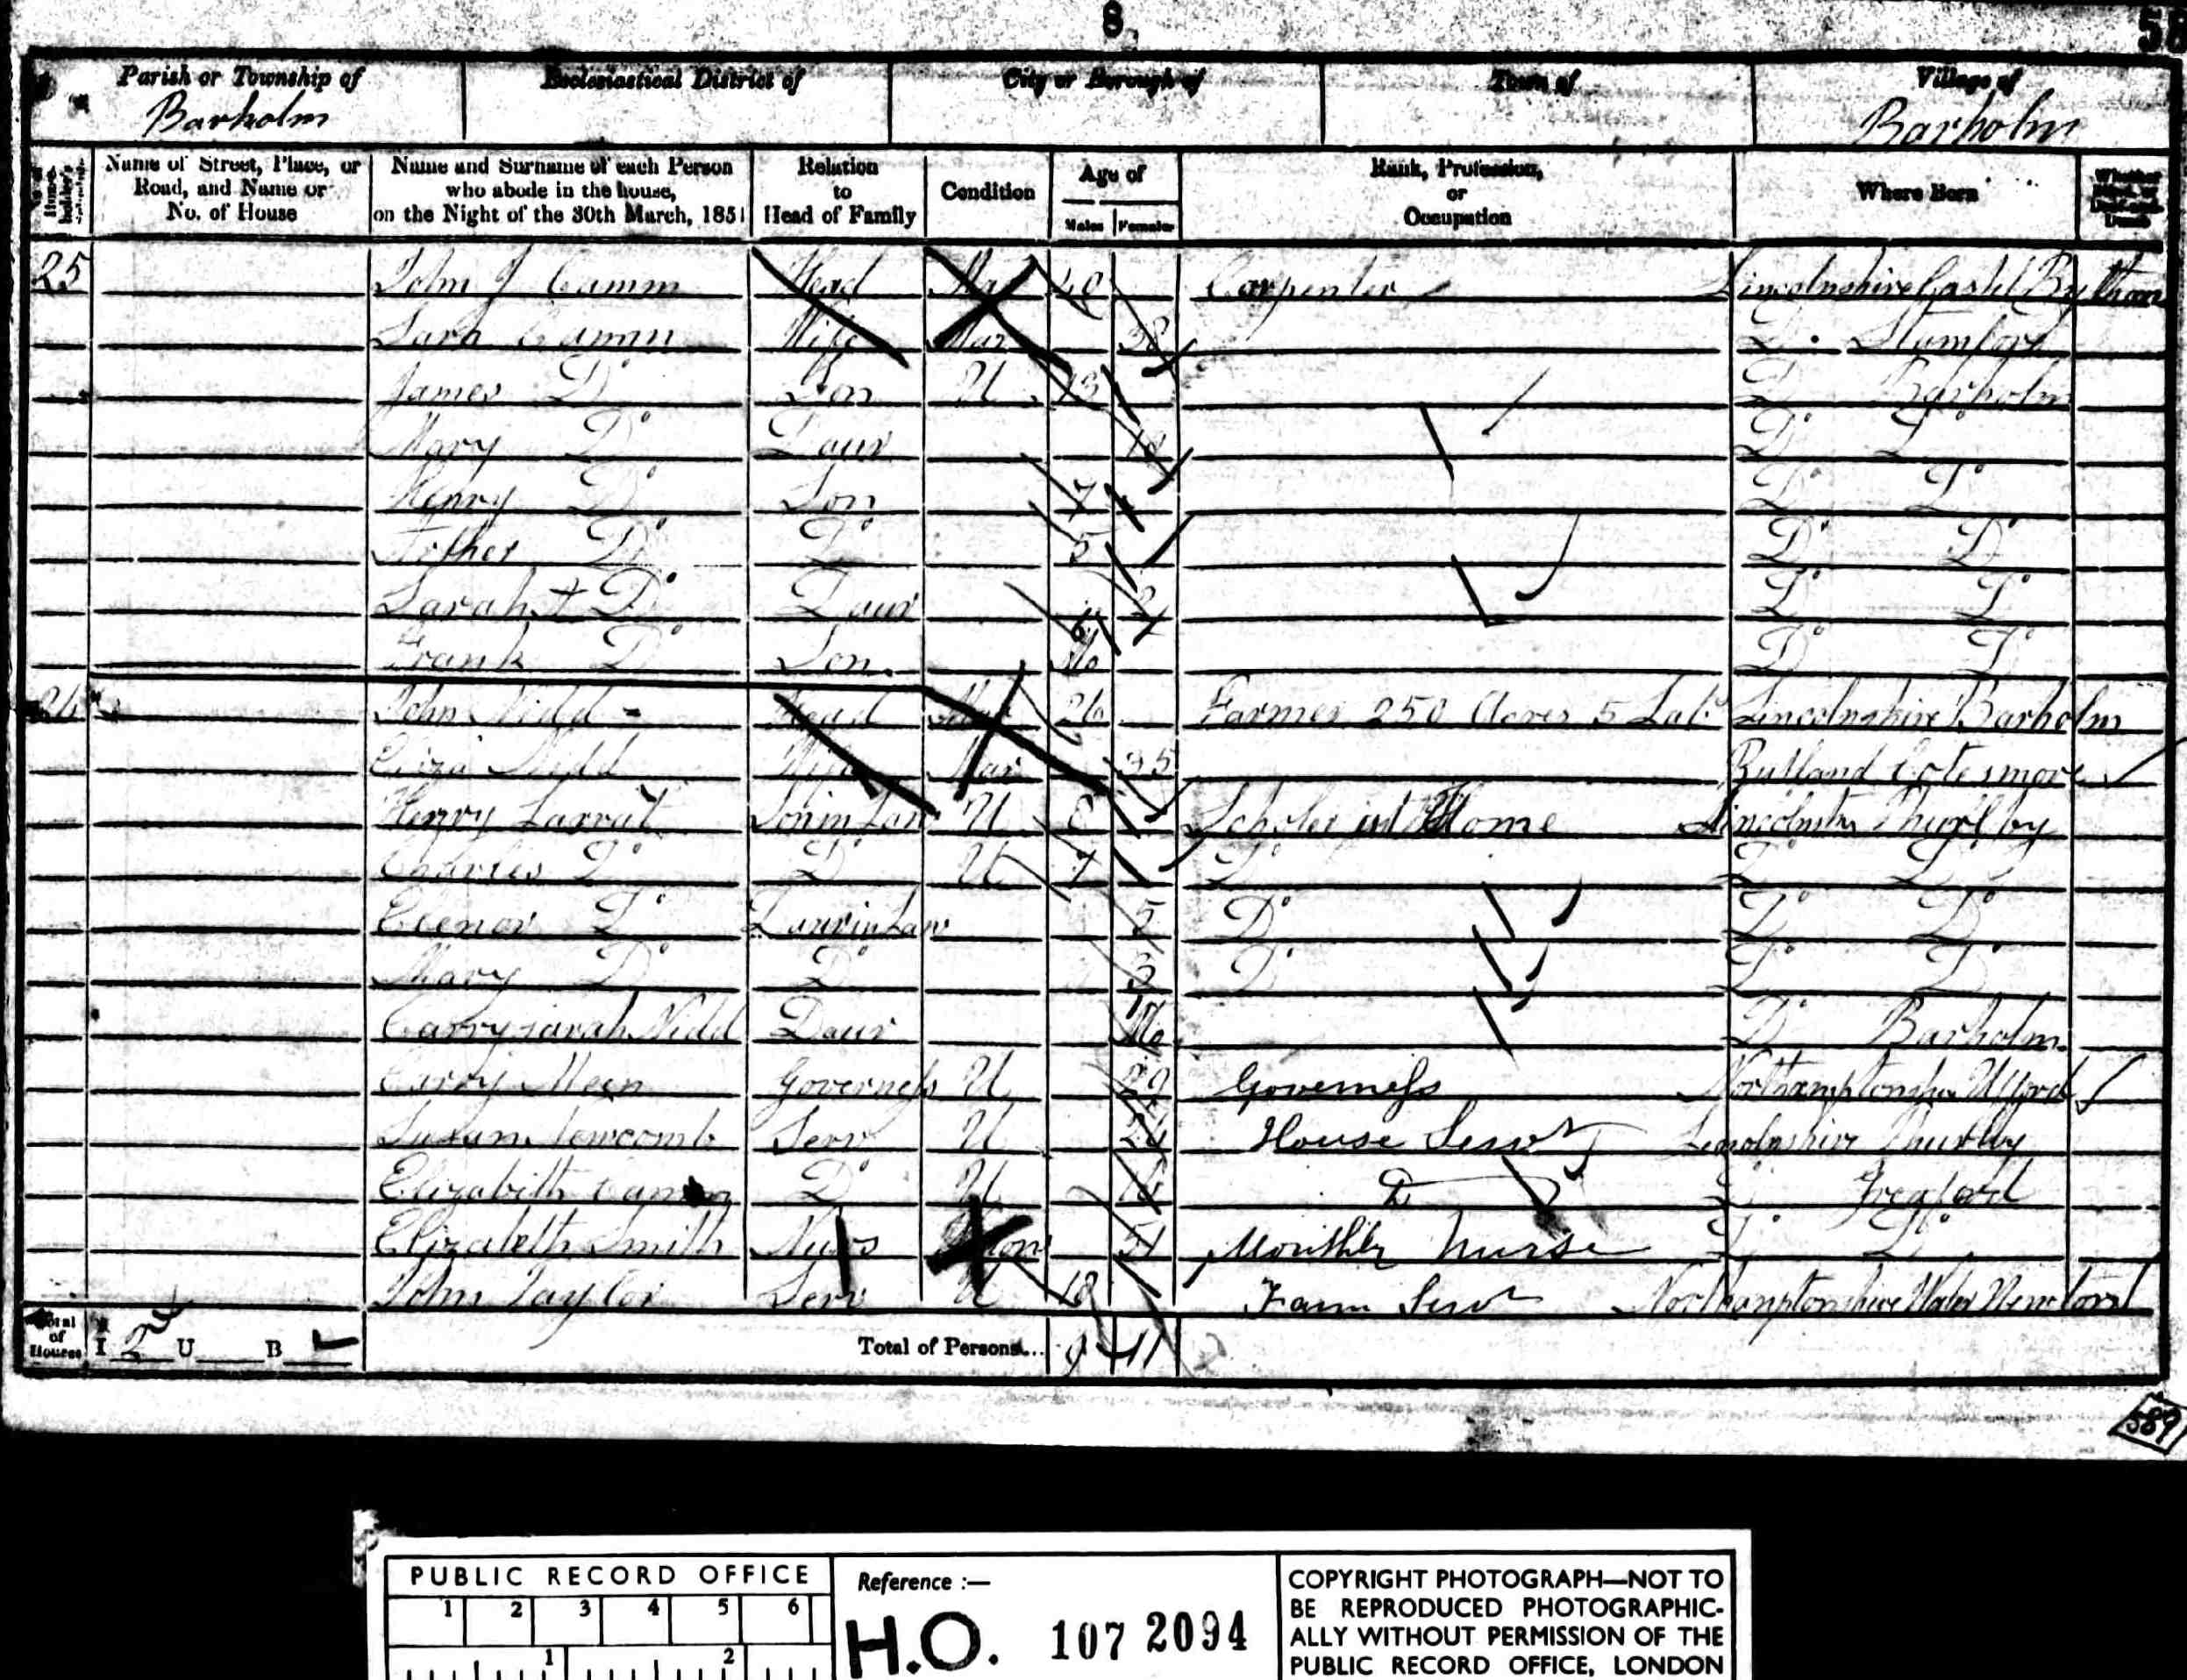 8
58
Parish or Township of Ecclesiastical District of City or Borough of Town of Village of
Barholm Barholm
Name of Street, Place, or Road, and Name or No. of House
Name and Surname of each Person who abode in the house, on the Night of the 30th March, 1851
Relation to Head of Family
Condition
Age of
Males Females
Rank, Profession, or Occupation
Where Born
Whether Blind, or Deaf-and-Dumb
25 John J Camm Head Mar 40 Carpenter Lincolnshire Castel Bytham
Sara Camm Wife Mar 38 Do Stamford
James Do Son U 13 Do Barholm
Mary Do Daur 10 Do Do
Henry Do Son 7 Do Do
Do Do 5 Do Do
Sarah Do Daur 2 Do Do
Frank Do Son Mo Do Do
26 John Nidd Head Mar 26 Farmer 250 Acres 5 Labs Lincolnshire Barholm
Eliza Nidd Wife Mar 35 Rutland Cotesmore
Henry Larrat Son in Law U 8 Scholer at Home Lincolnshr Thurlby
Charles Do Do U 7 Do Do Do
Elenor Do Daur in Law 5 Do Do Do
Mary Do Do 3 Do Do Do
Carry sarah Nidd Daur Mo Do Barholm
Carry Meen Governess U 29 Governess Northamptonshr Ufford
Susan Newcomb Serv U House Servt Lincolnshire Thurlby
Elizabeth U Do Greaford
Elizabeth Smith Nurs 51 Monthly Nurse Do Do
John Taylor Serv U 18 Farm Servt Northamptonshire Water Newton
Total of Houses I 2 U B Total of Persons... 9 11
589
PUBLIC RECORD OFFICE
1 2 3 4 5 6
1 2
Reference :—
H.O. 107 2094
COPYRIGHT PHOTOGRAPH—NOT TO
BE REPRODUCED PHOTOGRAPHIC-
ALLY WITHOUT PERMISSION OF THE
PUBLIC RECORD OFFICE, LONDON